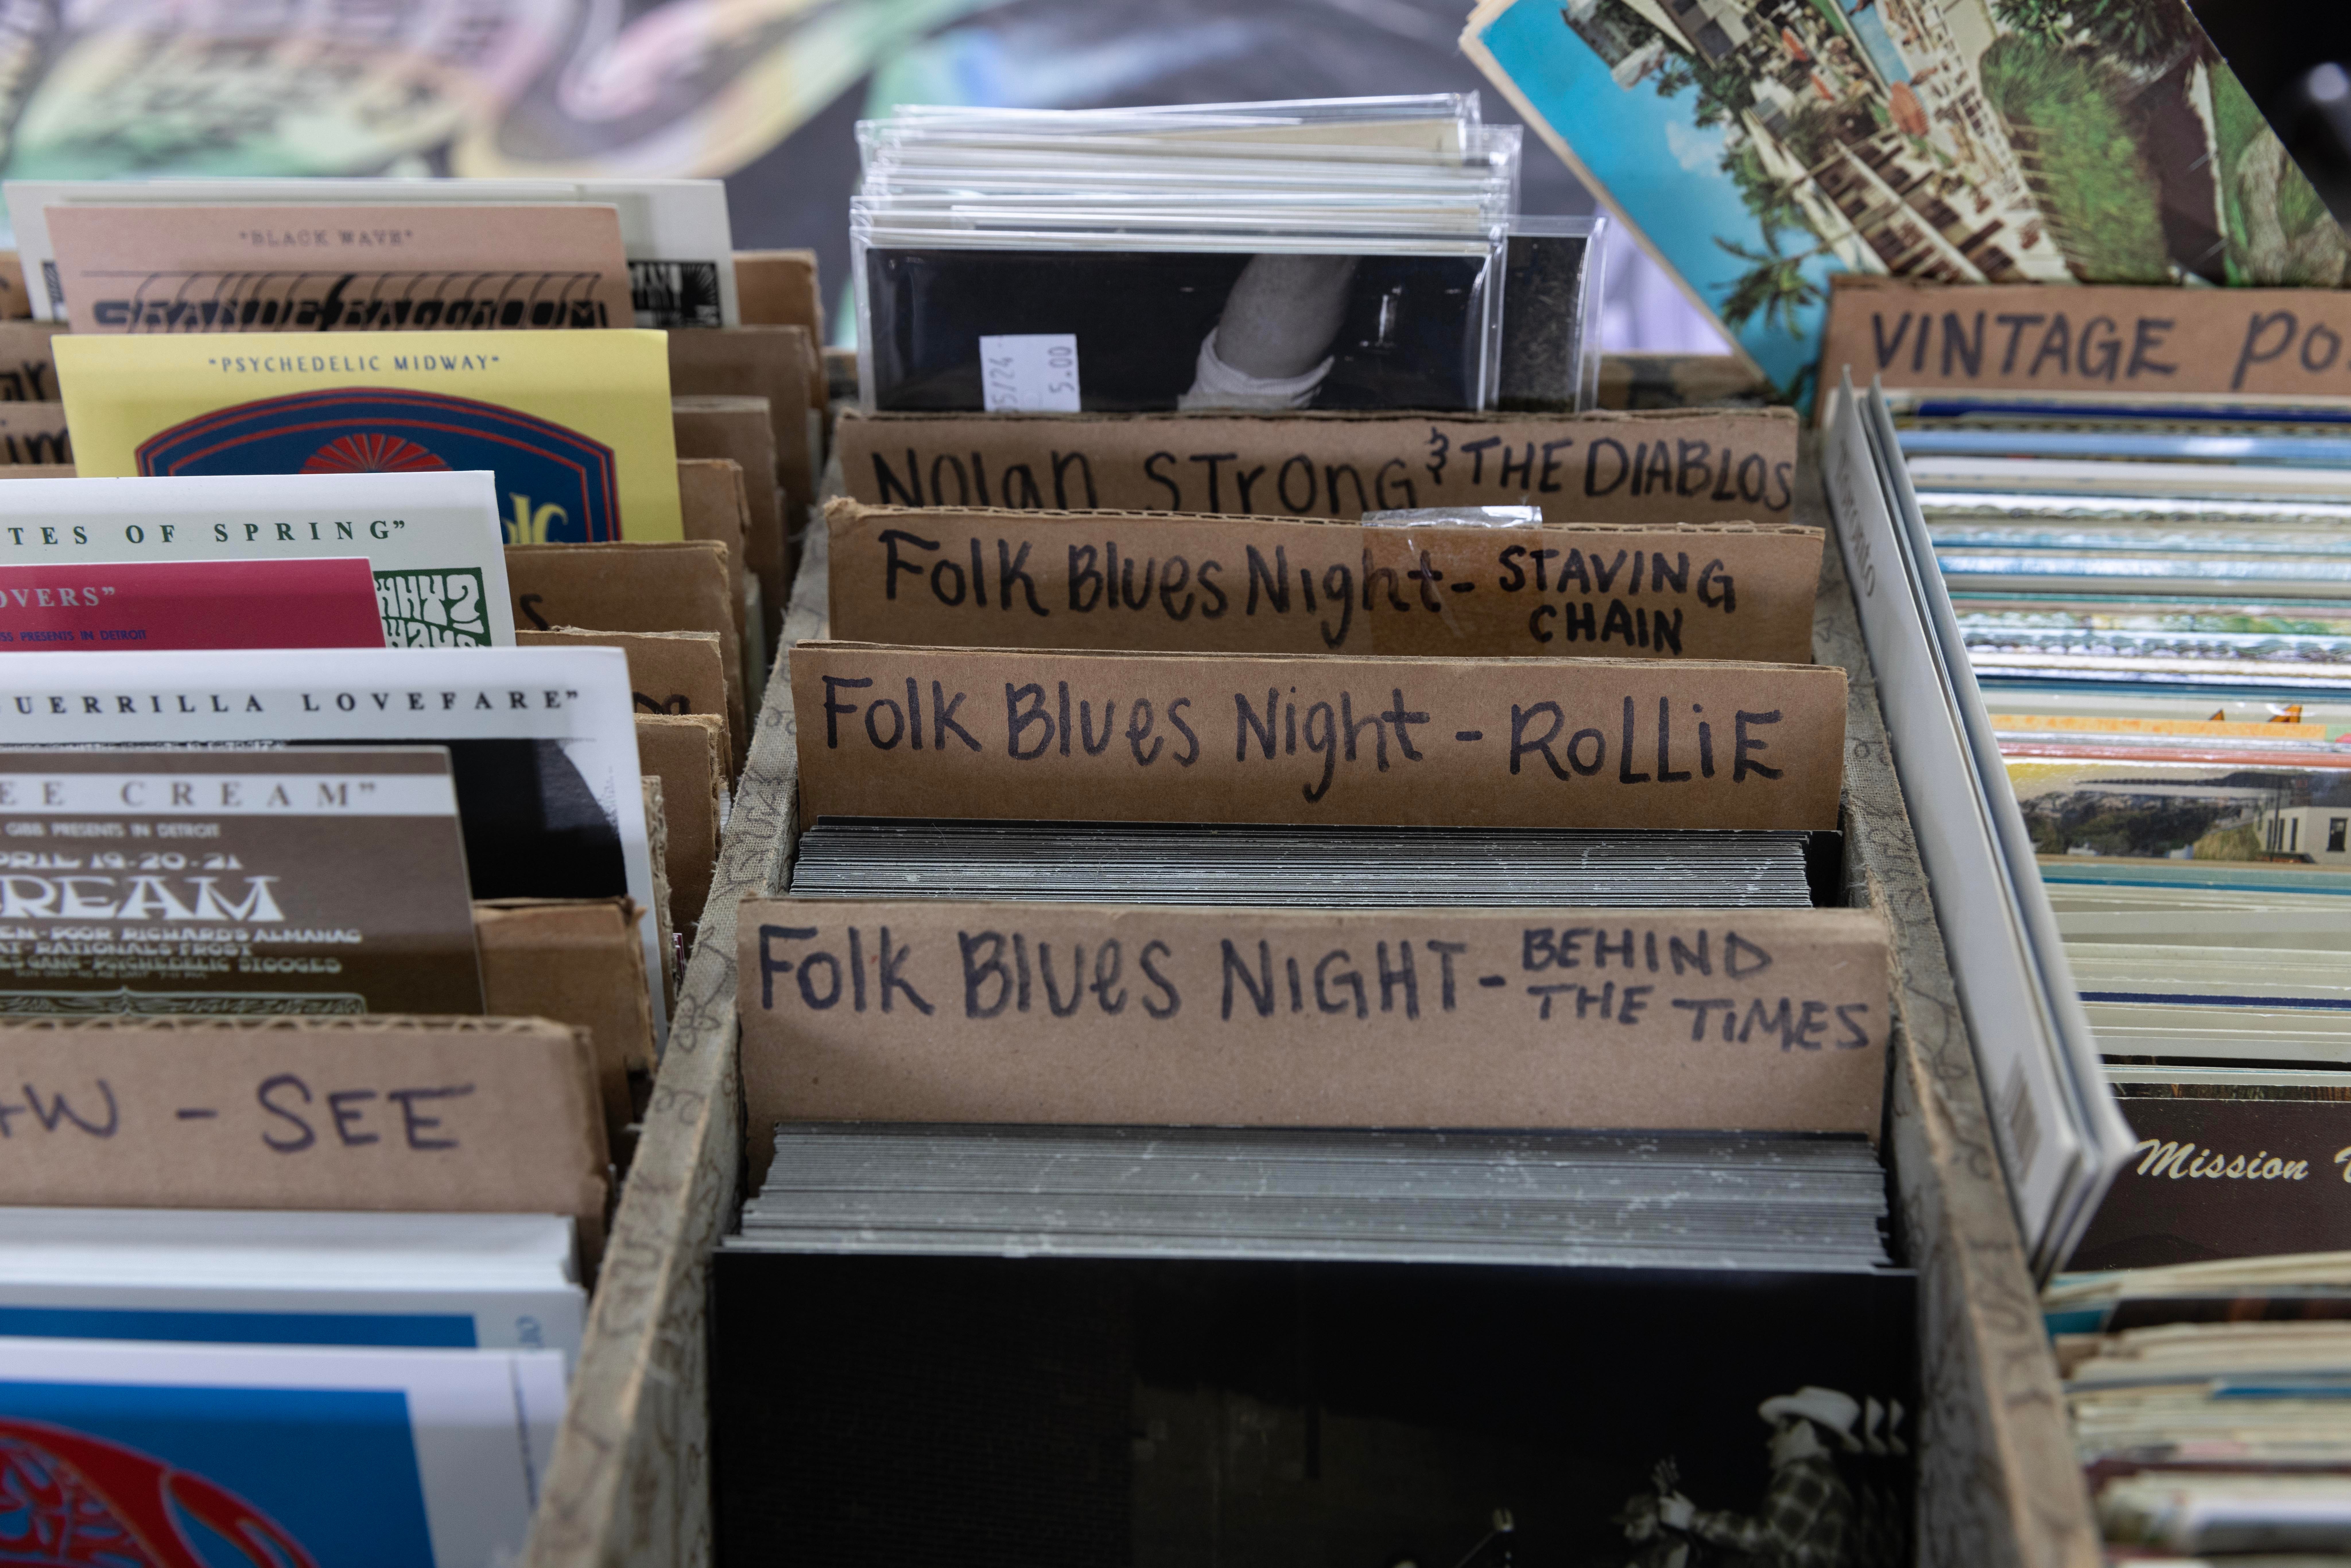 "BLACK WAVE"
GRANDE BALLROOM
"PSYCHEDELIC MIDWAY"
TES OF SPRING"
OVERS"
PRESENTS IN DETROIT
UERRILLA LOVEFARE"
EE CREAM"
GIBB PRESENTS IN DETROIT
APRIL 19-20-21
CREAM
POOR RICHARD'S ALMANAC
RATIONALS-FROST
GANG-PSYCHEDELIC STOOGES
- SEE
5.00
NOLAN STRONG & THE DIABLOS
Folk Blues Night - STAVING
CHAIN
Folk Blues Night - ROLLiE
Folk Blues NIGHT - BEHIND
THE TiMES
VINTAGE Po
Mission